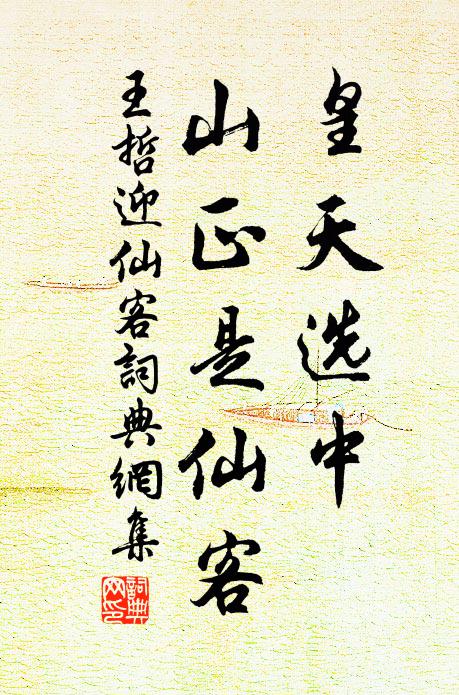 皇天选中
山正是仙客
王哲迎仙客詞典網集
詞典
网印